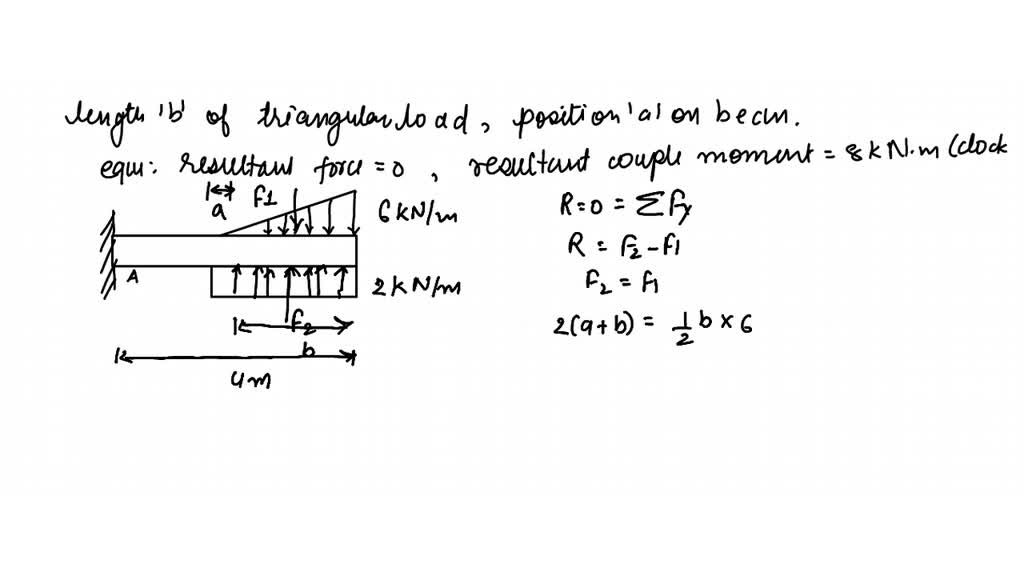 length 'b' of triangular load, position 'a' on beam.
equi: resultant force = 0, resultant couple moment = 8 kN.m (clock
a
F1
6 kN/m
A
2 kN/m
F2
b
4m
R = 0 = ΣFy
R = F2 - F1
F2 = F1
2(a + b) = 1/2 b × 6